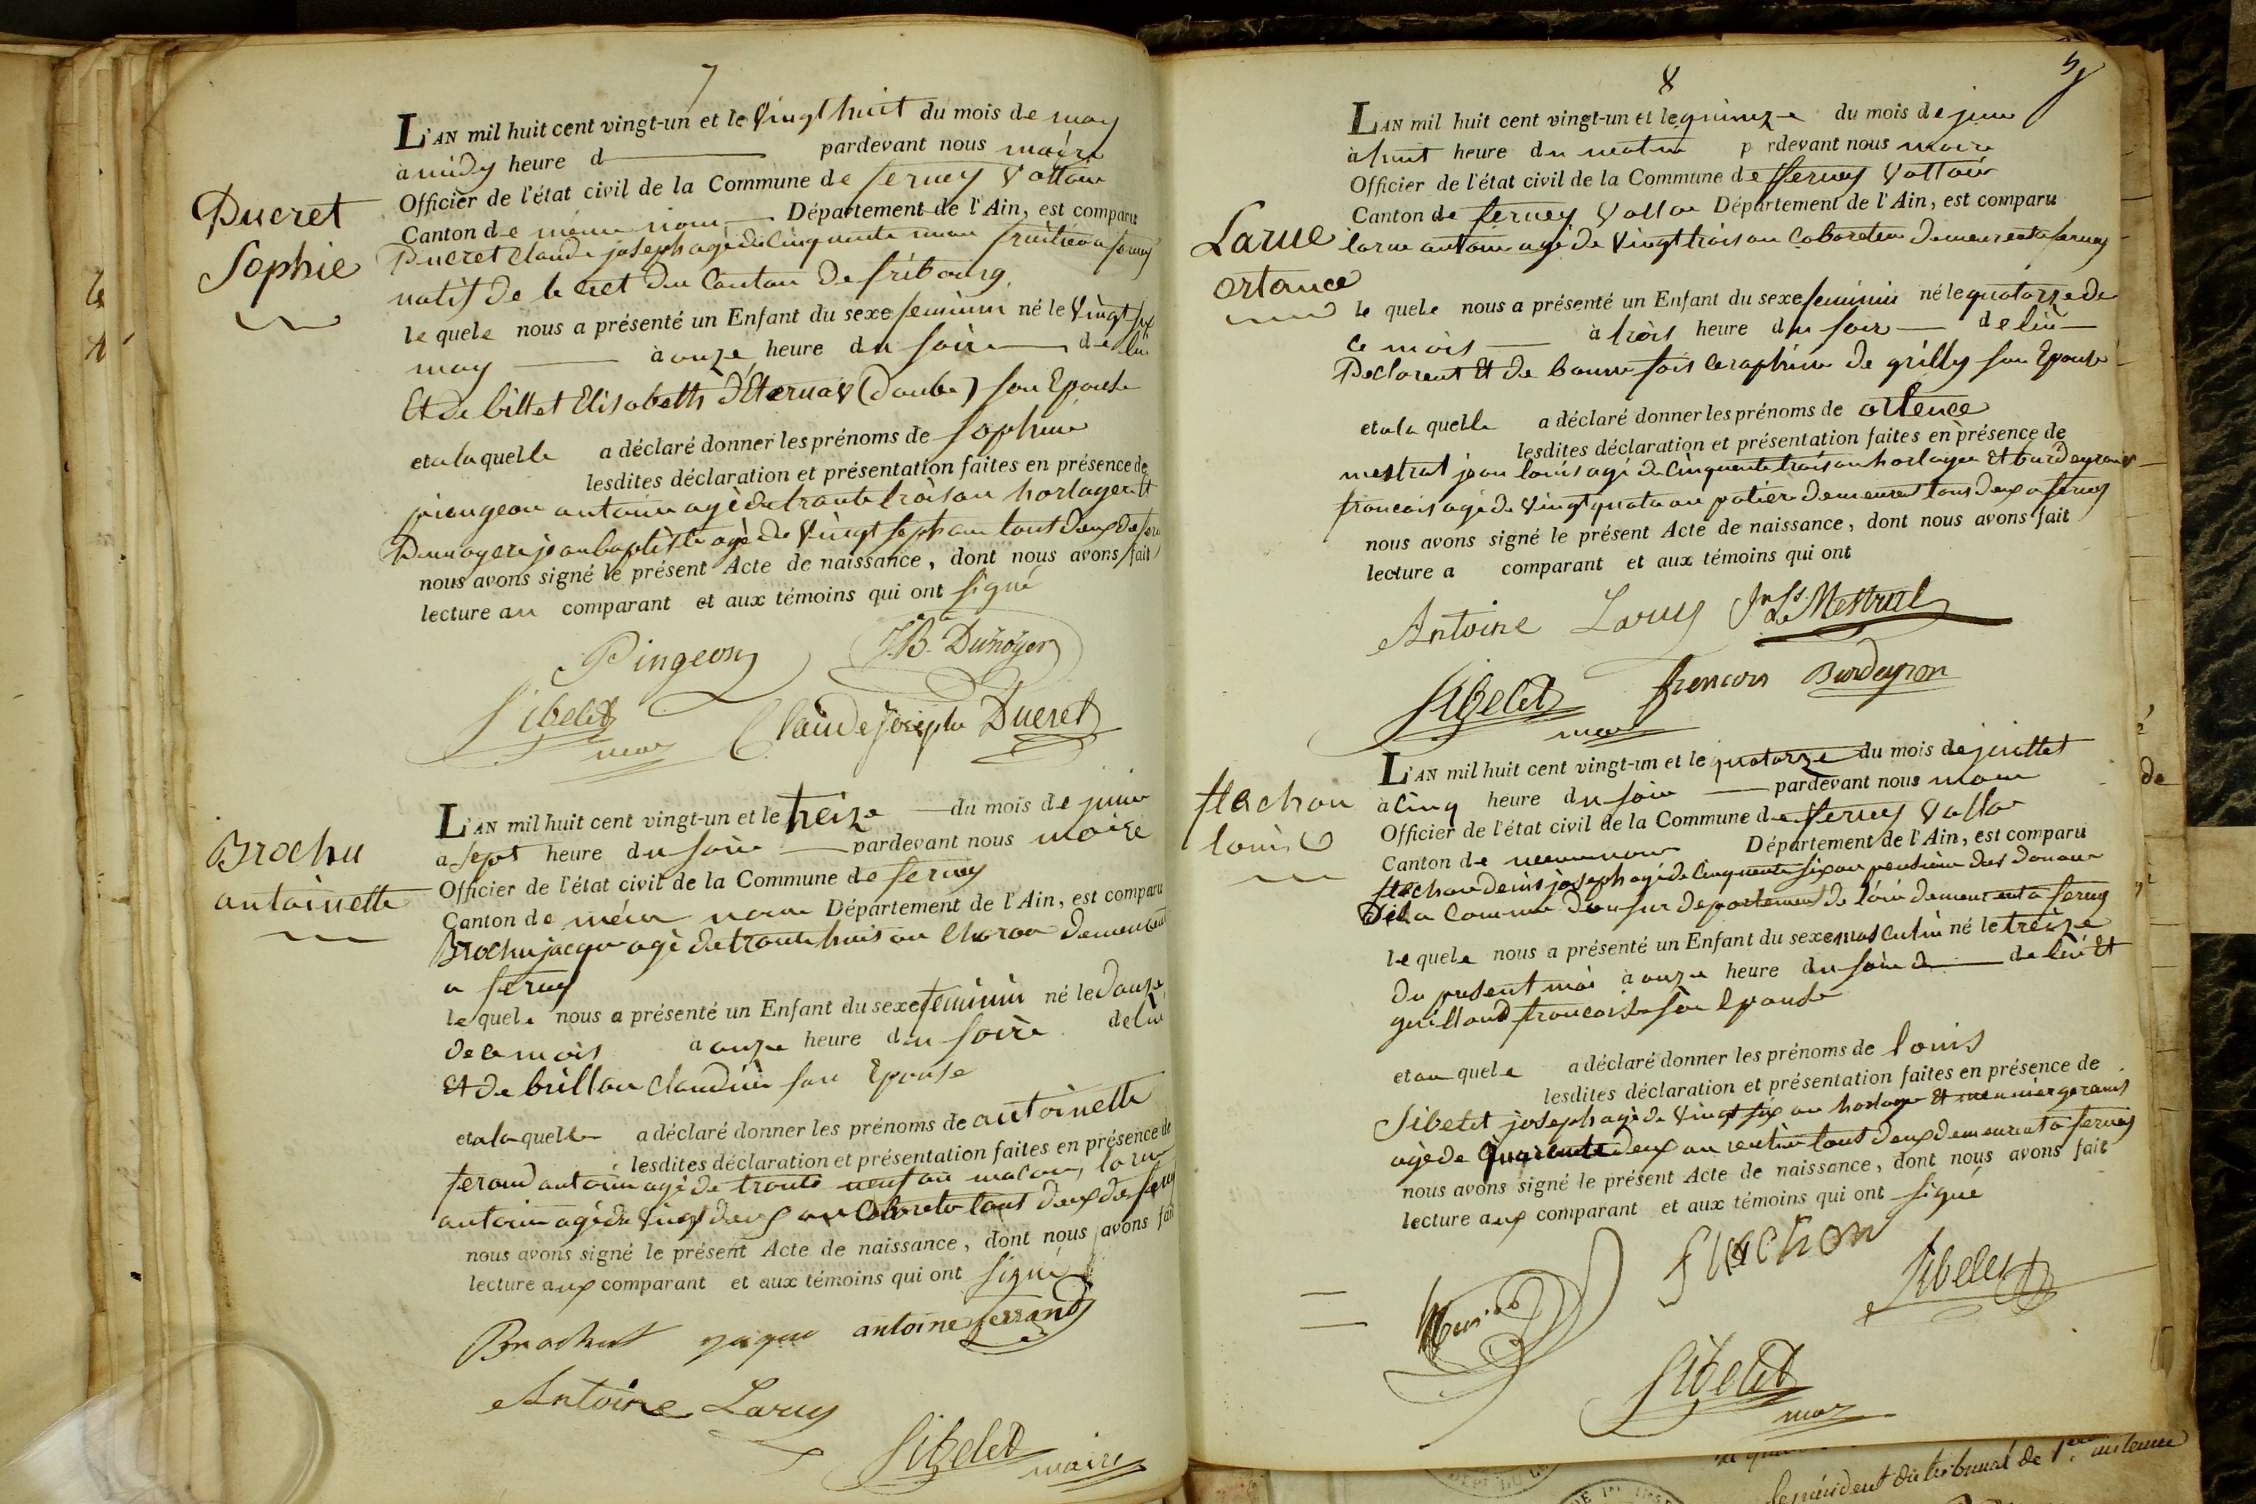 7
L'AN mil huit cent vingt-un et le vingt huit du mois de may
à midy heure d pardevant nous maire
Officier de l'état civil de la Commune de ferney Voltaire
Canton de même nom Département de l'Ain, est comparu
Ducret
Sophie
Ducret Claude joseph agé de Cinquante un an fruitier a ferney
natif de du Canton de fribourg
le quele nous a présenté un Enfant du sexe feminin né le Vingt six
may à onze heure du soire de lui
Et de billet Elisabeth D'Eternaz (doubs) son Epouse
et a la quelle a déclaré donner les prénoms de Sophie
lesdites déclaration et présentation faites en présence de
pingeon antoine agé de trante trois an horloger Et
Dunoyer jean baptiste agé de Vingt sept an tout deux de
nous avons signé le présent Acte de naissance, dont nous avons fait
lecture au comparant et aux témoins qui ont signé
Pingeon J.B. Dunoyer
Sibelet maire Claude Joseph Ducret
L'AN mil huit cent vingt-un et le treize du mois de juin
a sept heure du soire pardevant nous maire
Brochu
antoinette
Officier de l'état civil de la Commune de ferney
Canton de même nom Département de l'Ain, est comparu
Brochu jacque agé de trante huit an Charon demeurant
a ferney
le quele nous a présenté un Enfant du sexe feminin né le douze
de ce mois a onze heure du soire de lui
Et de brillon Claudine son Epouse
et a la quelle a déclaré donner les prénoms de antoinette
lesdites déclaration et présentation faites en présence de
ferand antoine agé de trante neuf an macon, larue
antoine agé de Vingt deux an tout deux de ferney
nous avons signé le présent Acte de naissance, dont nous avons fait
lecture aux comparant et aux témoins qui ont signé
Brochut antoine ferrand
Antoine Larue
Sibelet maire
8
5
L'AN mil huit cent vingt-un et le quinze du mois de juin
à huit heure du matin pardevant nous maire
Officier de l'état civil de la Commune de ferney Voltaire
Canton de ferney Département de l'Ain, est comparu
Larue
ortance
larue antoine agé de Vingt trois an demeurent a ferney
le quele nous a présenté un Enfant du sexe feminin né le quatorze de
ce mois à trois heure du soir de lui
Declarent Et de bonne fois de grilly son Epouse
et a la quelle a déclaré donner les prénoms de ortence
lesdites déclaration et présentation faites en présence de
mestral jean louis agé de Cinquante trois an horloger Et burdeyron
francois agé de Vingt quatre an potier demeurent tous deux a ferney
nous avons signé le présent Acte de naissance, dont nous avons fait
lecture a comparant et aux témoins qui ont
Antoine Larue Jn Ls. Mestral
Sibelet maire francois Burdeyron
L'AN mil huit cent vingt-un et le quatorze du mois de juillet
à cinq heure du soir pardevant nous maire
flachon
louis
Officier de l'état civil de la Commune de ferney
Canton de meme nom Département de l'Ain, est comparu
flachon denis joseph agé de Cinquante six an
De la Commune departement de l'ain demeurent a ferney
le quele nous a présenté un Enfant du sexe masculin né le treize
du present moi à onze heure du soir de lui Et
francoise son Epouse
et au quele a déclaré donner les prénoms de louis
lesdites déclaration et présentation faites en présence de
Sibelet joseph agé de Vingt six an horloger Et
agé de quarante deux an rentier tout deux demeurent a ferney
nous avons signé le présent Acte de naissance, dont nous avons fait
lecture aux comparant et aux témoins qui ont signé
flachon
Sibelet
Sibelet
maire
de
président du tribunal de 1ère instance